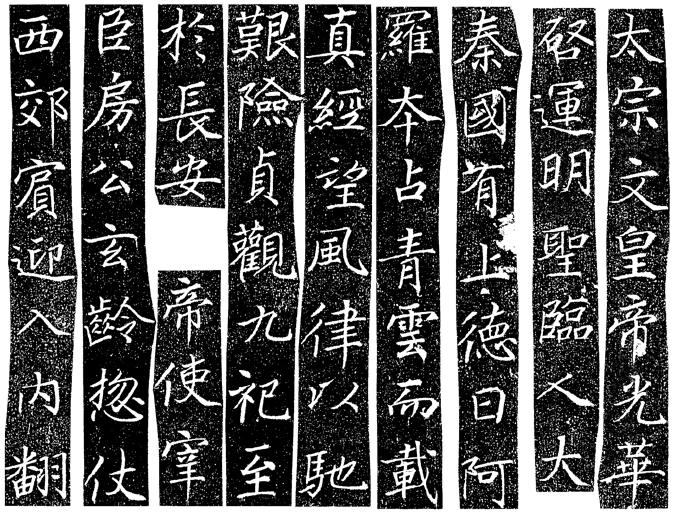 太宗文皇帝光華
啓運明聖臨人大
秦國有上德曰阿
羅本占青雲而載
真經望風律以馳
艱險貞觀九祀至
於長安 帝使宰
臣房公玄齡惣仗
西郊賓迎入內翻